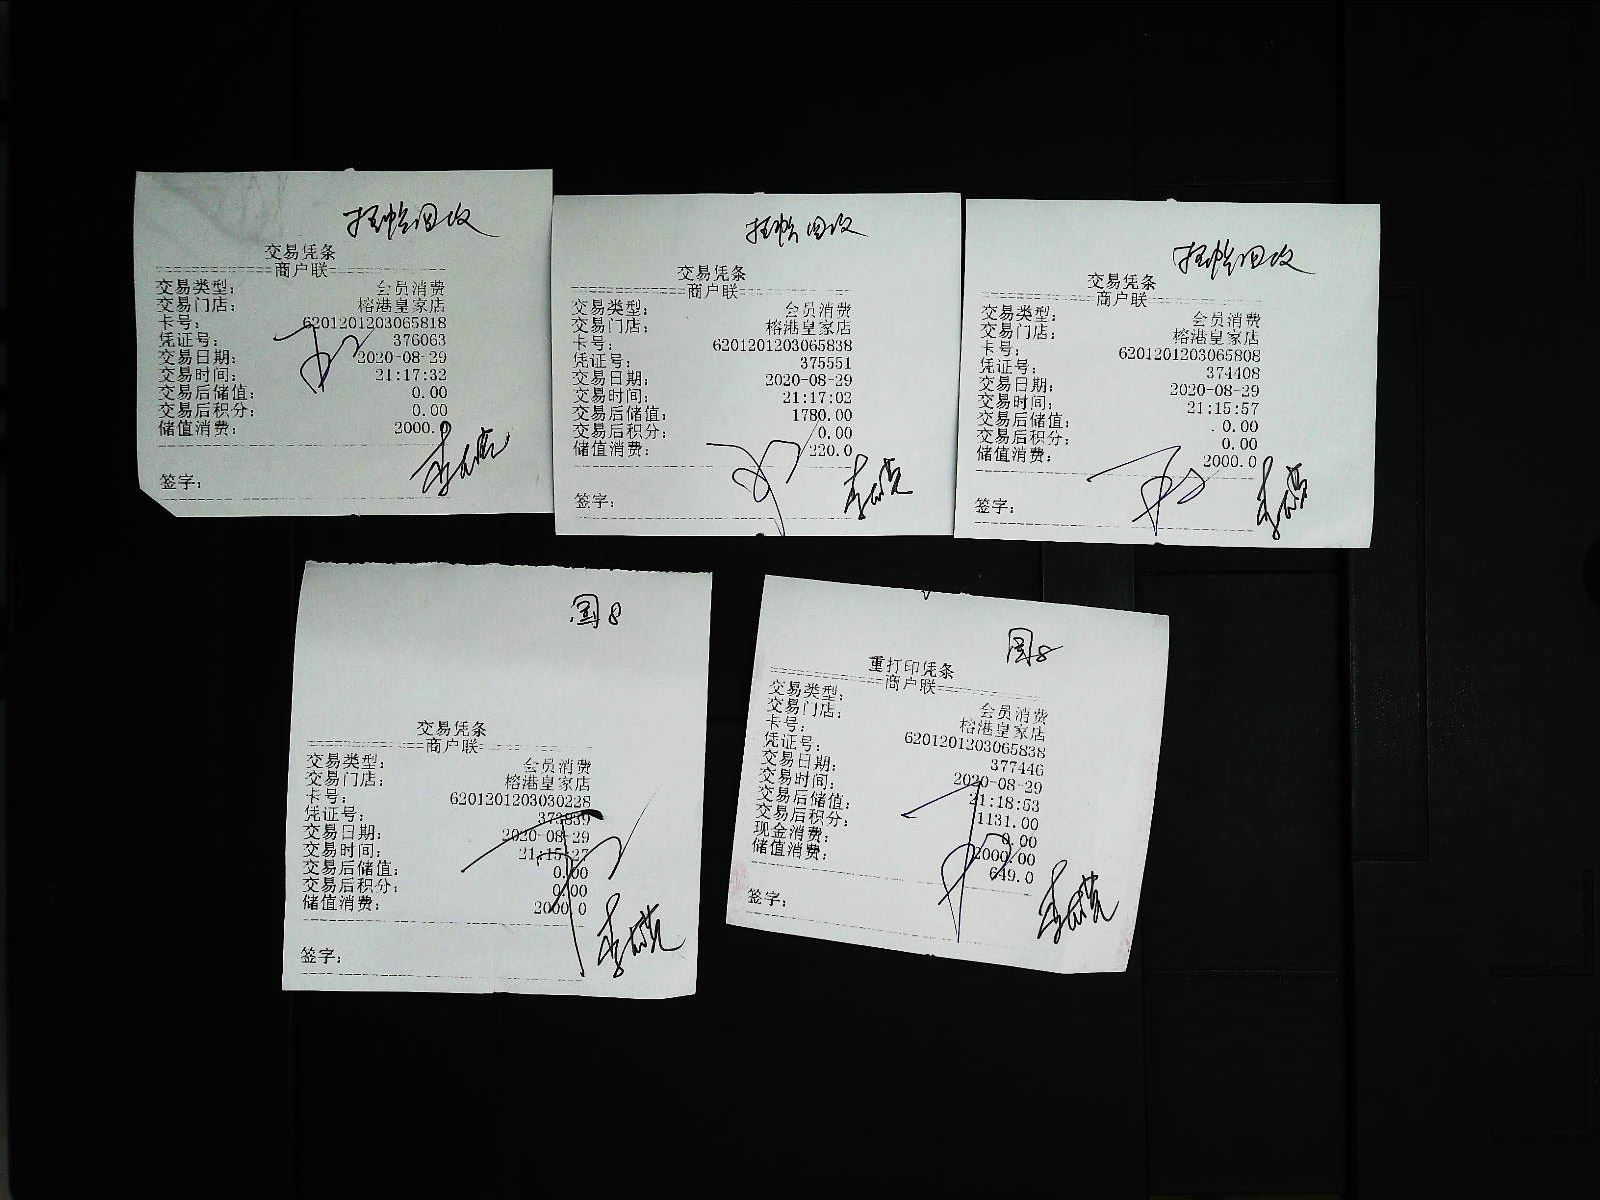 挂帐回收
交易凭条
商户联
交易类型: 会员消费
交易门店: 榕港皇家店
卡号: 6201201203065818
凭证号: 376063
交易日期: 2020-08-29
交易时间: 21:17:32
交易后储值: 0.00
交易后积分: 0.00
储值消费: 2000.0
签字:
挂帐回收
交易凭条
商户联
交易类型: 会员消费
交易门店: 榕港皇家店
卡号: 6201201203065838
凭证号: 375551
交易日期: 2020-08-29
交易时间: 21:17:02
交易后储值: 1780.00
交易后积分: 0.00
储值消费: 220.0
签字:
挂帐回收
交易凭条
商户联
交易类型: 会员消费
交易门店: 榕港皇家店
卡号: 6201201203065808
凭证号: 374408
交易日期: 2020-08-29
交易时间: 21:15:57
交易后储值: 0.00
交易后积分: 0.00
储值消费: 2000.0
签字:
8
交易凭条
商户联
交易类型: 会员消费
交易门店: 榕港皇家店
卡号: 6201201203030228
凭证号: 373839
交易日期: 2020-08-29
交易时间: 21:15:27
交易后储值: 0.00
交易后积分: 0.00
储值消费: 2000.0
签字:
8
重打印凭条
商户联
交易类型: 会员消费
交易门店: 榕港皇家店
卡号: 6201201203065838
凭证号: 377446
交易日期: 2020-08-29
交易时间: 21:18:53
交易后储值: 1131.00
交易后积分: 0.00
现金消费: 2000.00
储值消费: 649.0
签字: